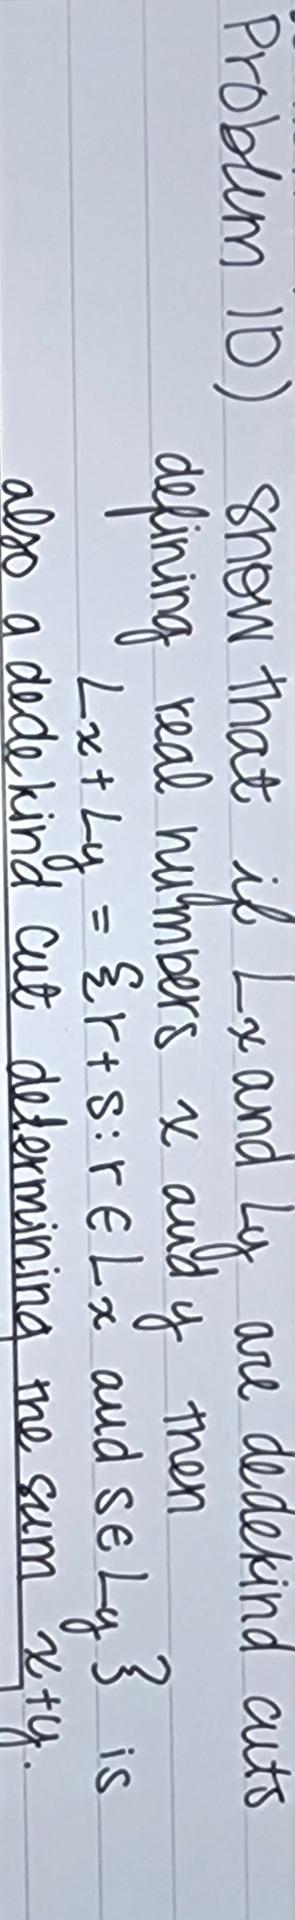 Problem 10) Show that if Lx and Ly are dedekind cuts
defining real numbers x and y then
Lx + Ly = {r + s : r ∈ Lx and s ∈ Ly} is
also a dedekind cut determining the sum x+y.